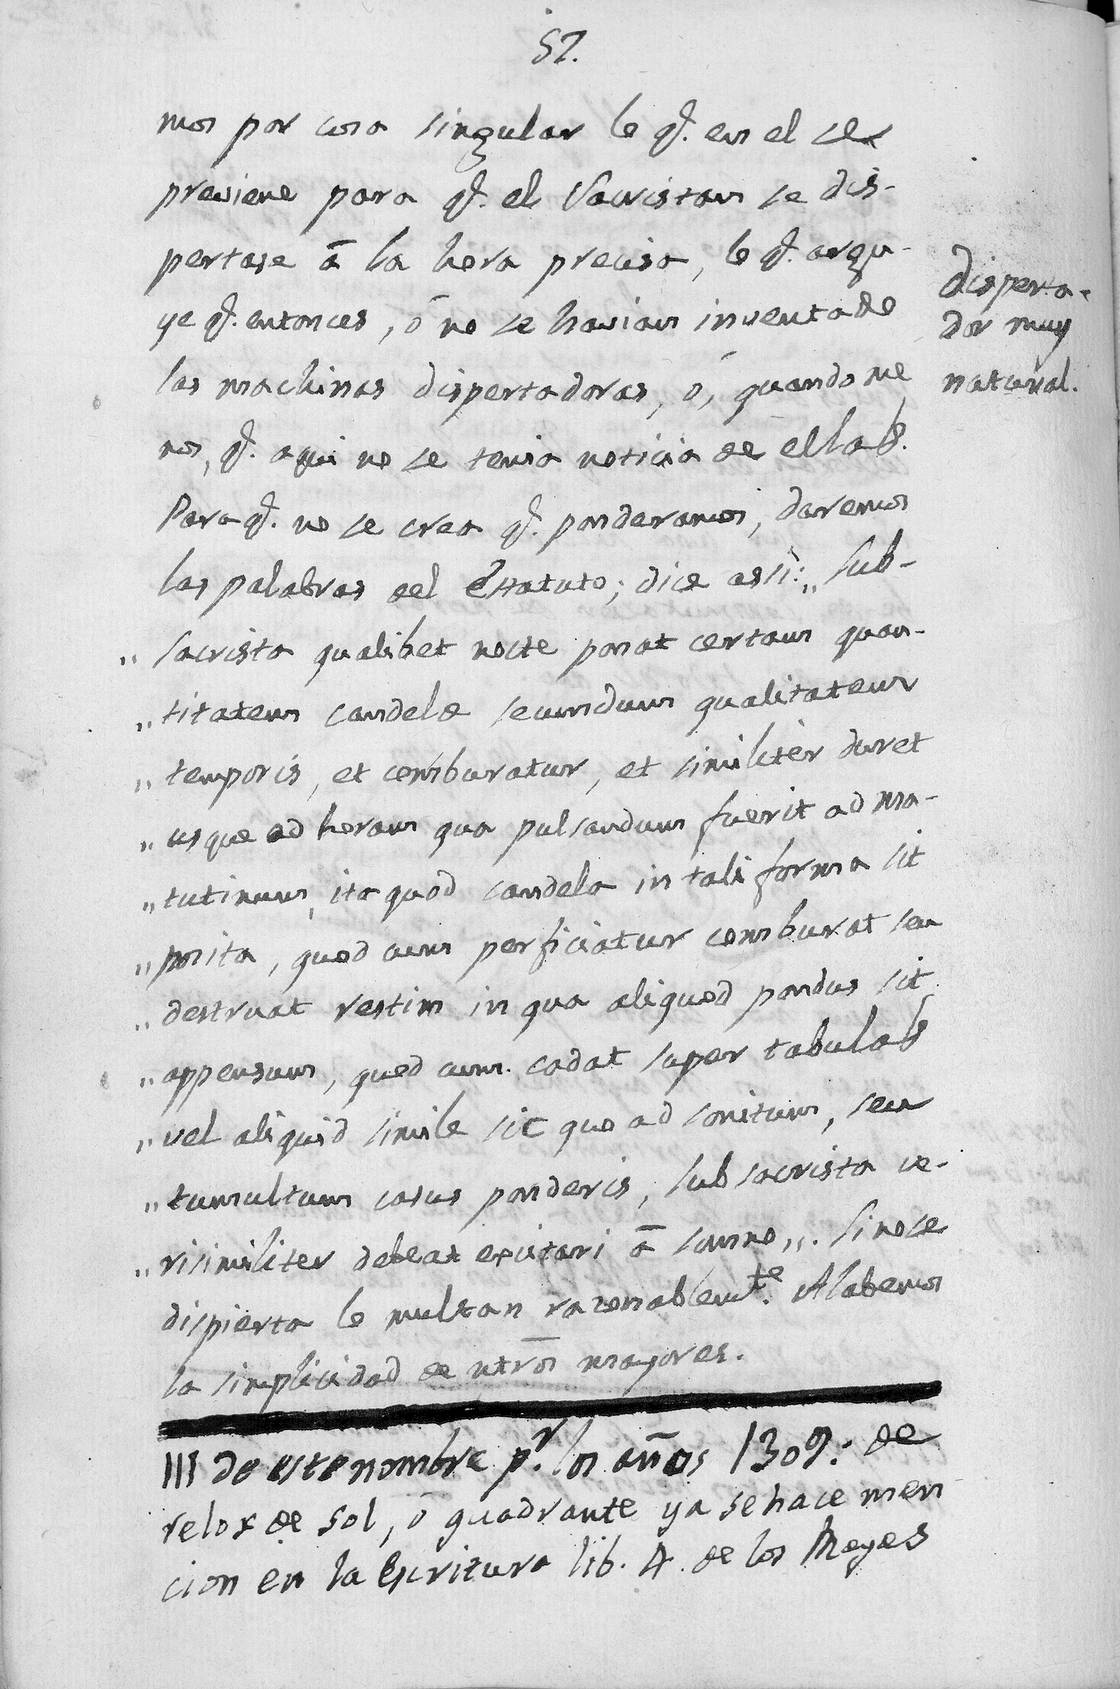 57.
mos por cosa singular lo q.e en el se
previene para q.e el Sacristan se dis-
pertase à la hora precisa, lo q.e argu-
ye q.e entonces, ó no se havian inventado
las machinas dispertadoras, ó, quando me
nos, q.e aqui no se tenia noticia de ellas.
Para q.e no se crea q.e ponderamos, daremos
las palabras del Estatuto; dice assi: „ Sub-
„ sacrista qualibet nocte ponat certam quan-
„ titatem candele secundum qualitatem
„ temporis, et comburatur, et similitèr duret
„ usque ad horam qua pulsandum fuerit ad ma-
„ tutinum, ita quod candela in tali forma sit
„ posita, quod cum perficiatur comburat seu
„ destruat restim in qua aliquod pondus sit
„ appensum, quod cum cadat super tabulas
„ vel aliquid simile sic quo ad sonitum, seu
„ tumultum casus ponderis, subsacrista ve-
„ risimiliter debeat excitari à somno „. Si no se
dispierta lo multan razonablem.te Alabemos
la simplicidad de ntrõs mayores.
Disperta-
dor muy
natural.
III de este nombre p.r los años 1309: de
relox de sol, ó quadrante ya se hace men
cion en la Escritura lib. 4. de los Reyes